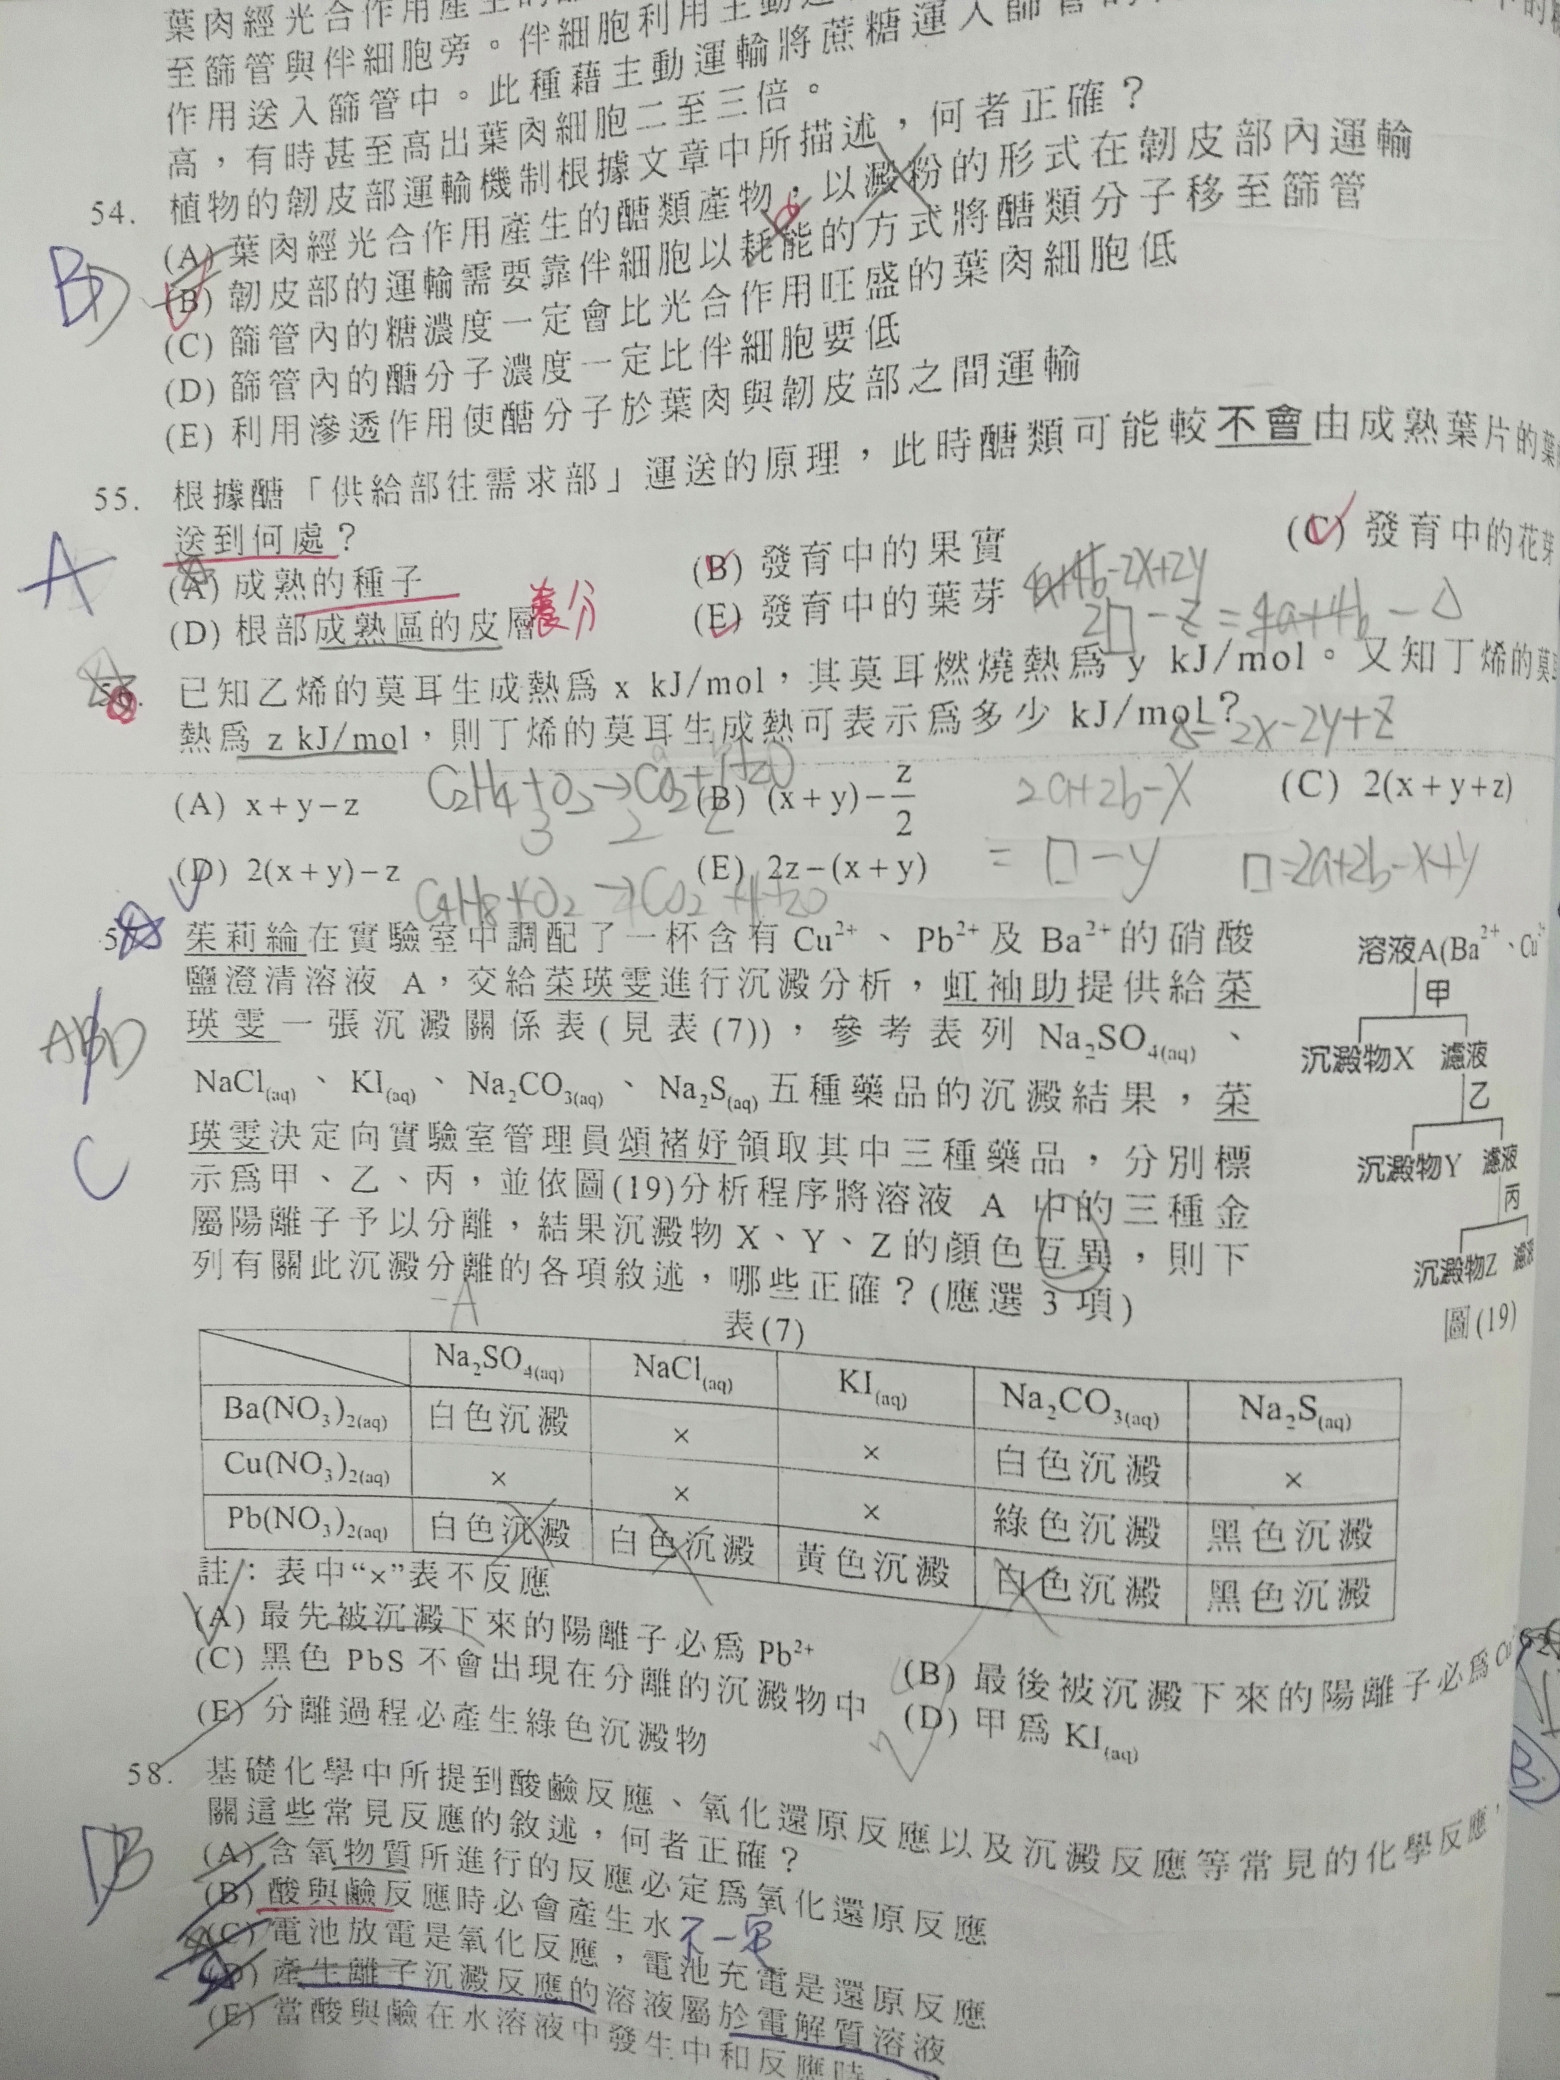 葉肉經光合作用產生的
至篩管與伴細胞旁。伴細胞利用主動運輸將蔗糖運入篩管
作用送入篩管中。此種藉主動運輸
高，有時甚至高出葉肉細胞二至三倍。
54. 植物的韌皮部運輸機制根據文章中所描述，何者正確？
(A) 葉肉經光合作用產生的醣類產物，以澱粉的形式在韌皮部內運輸
BD
(B) 韌皮部的運輸需要靠伴細胞以耗能的方式將醣類分子移至篩管
(C) 篩管內的糖濃度一定會比光合作用旺盛的葉肉細胞低
(D) 篩管內的醣分子濃度一定比伴細胞要低
(E) 利用滲透作用使醣分子於葉肉與韌皮部之間運輸
55. 根據醣「供給部往需求部」運送的原理，此時醣類可能較不會由成熟葉片的葉
送到何處？
A
(A) 成熟的種子 (B) 發育中的果實 (C) 發育中的花芽
(D) 根部成熟區的皮層 (E) 發育中的葉芽
4a+4b-2x+2y
2□-z=4a+4b-△
已知乙烯的莫耳生成熱為 x kJ/mol，其莫耳燃燒熱為 y kJ/mol。又知丁烯的莫
熱為 z kJ/mol，則丁烯的莫耳生成熱可表示為多少 kJ/mol？
(A) x+y−z (B) (x+y)−z/2 (C) 2(x+y+z)
2a+2b-x
(D) 2(x+y)−z (E) 2z−(x+y)
=□-y □=2a+2b-x+y
茱莉綸在實驗室中調配了一杯含有 Cu²⁺、Pb²⁺及 Ba²⁺的硝酸
鹽澄清溶液 A，交給菜瑛雯進行沉澱分析，虹袖助提供給菜
瑛雯一張沉澱關係表(見表(7))，參考表列 Na₂SO₄(aq)、
NaCl(aq)、KI(aq)、Na₂CO₃(aq)、Na₂S(aq)五種藥品的沉澱結果，菜
瑛雯決定向實驗室管理員頌褚妤領取其中三種藥品，分別標
示為甲、乙、丙，並依圖(19)分析程序將溶液 A 中的三種金
屬陽離子予以分離，結果沉澱物 X、Y、Z 的顏色互異，則下
列有關此沉澱分離的各項敘述，哪些正確？(應選 3 項)
ABD
C
溶液A(Ba²⁺、Cu²⁺
甲
沉澱物X 濾液
乙
沉澱物Y 濾液
丙
沉澱物Z 濾液
圖(19)
表(7)
Na₂SO₄(aq) NaCl(aq) KI(aq) Na₂CO₃(aq) Na₂S(aq)
Ba(NO₃)₂(aq) 白色沉澱 × × 白色沉澱 ×
Cu(NO₃)₂(aq) × × × 綠色沉澱 黑色沉澱
Pb(NO₃)₂(aq) 白色沉澱 白色沉澱 黃色沉澱 白色沉澱 黑色沉澱
註：表中“×”表不反應
(A) 最先被沉澱下來的陽離子必為 Pb²⁺
(B) 最後被沉澱下來的陽離子必為
(C) 黑色 PbS 不會出現在分離的沉澱物中
(D) 甲為 KI(aq)
(E) 分離過程必產生綠色沉澱物
58. 基礎化學中所提到酸鹼反應、氧化還原反應以及沉澱反應等常見的化學反應，
關這些常見反應的敘述，何者正確？
(A) 含氧物質所進行的反應必定為氧化還原反應
(B) 酸與鹼反應時必會產生水 不一定
(C) 電池放電是氧化反應，電池充電是還原反應
(D) 產生離子沉澱反應的溶液屬於電解質溶液
(E) 當酸與鹼在水溶液中發生中和反應時，